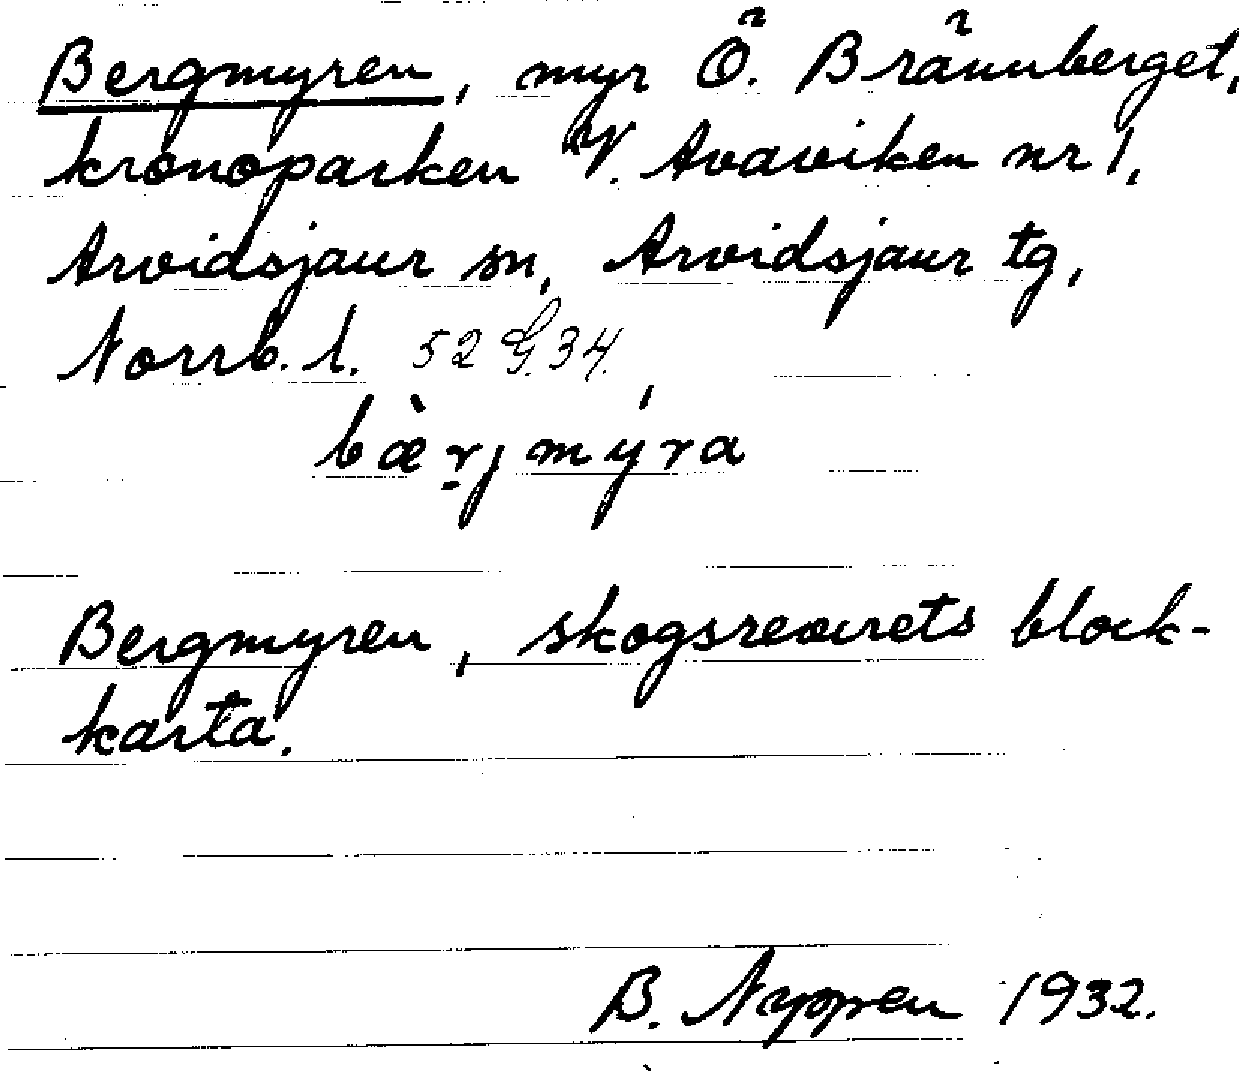 Bergmyren, myr Ö. Brännberget,
kronoparken V. Avaviken nr 1,
Arvidsjaur sn, Arvidsjaur tg,
Norrb. l. 52 G. 34.
bæ̀r̠jmýra
Bergmyren, skogsrevirets block-
karta.
B. Nyppen 1932.